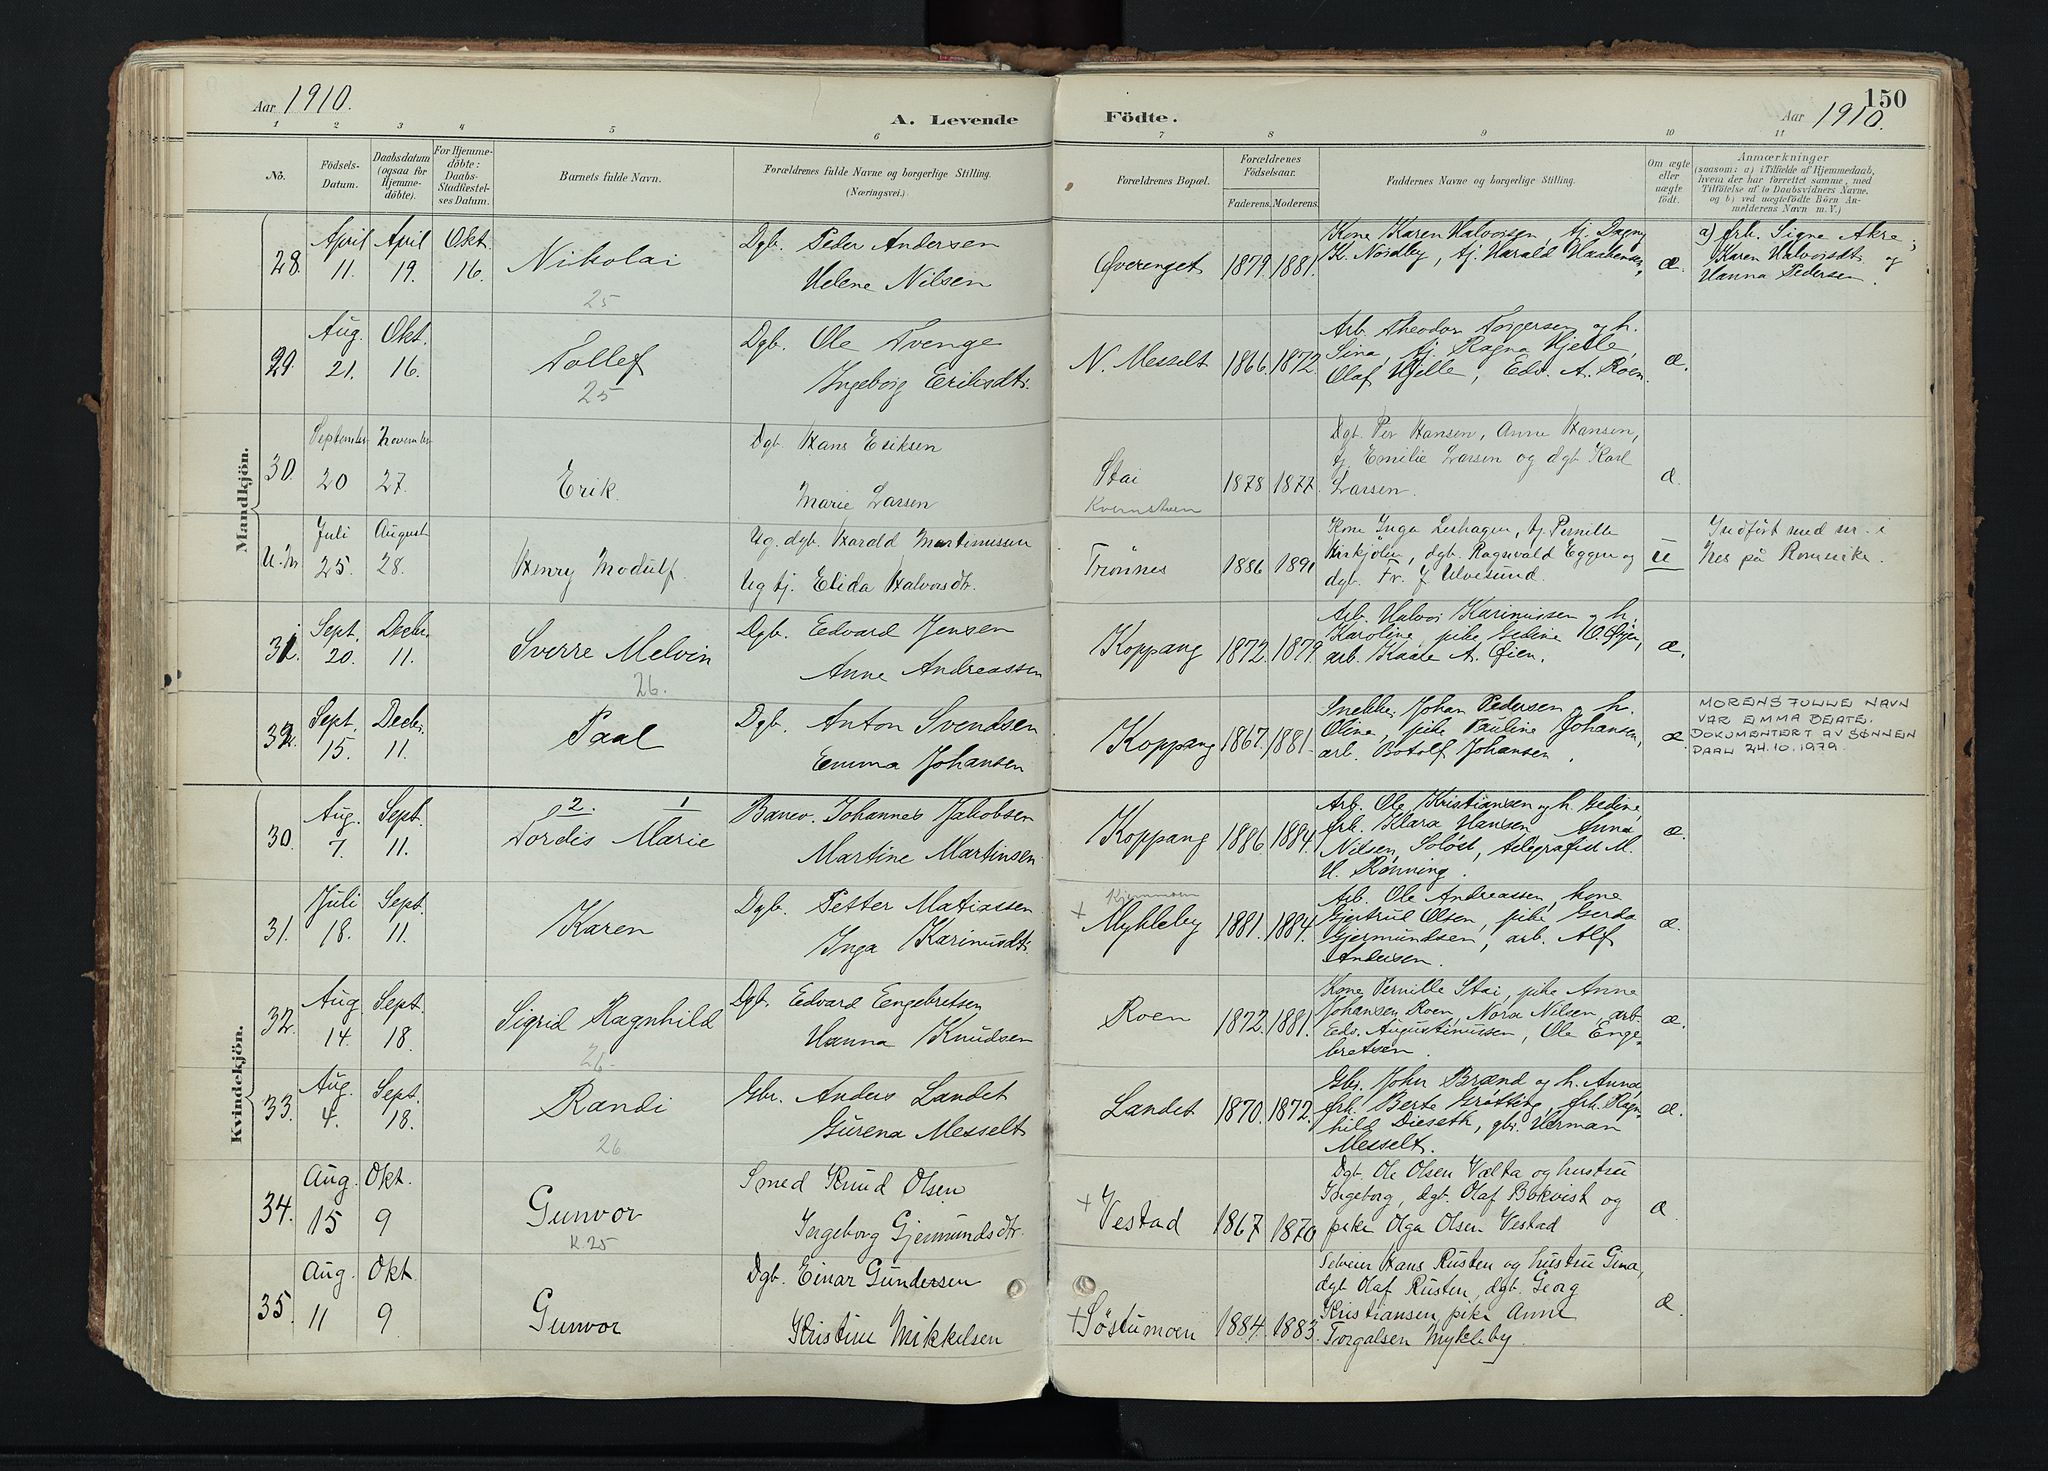 Aar 1910.
A. Levende Födte.
Aar 1910.
150
1 2 3 4 5 6 7 8 9 10 11
No.
Födsels-Datum.
Daabsdatum (ogsaa for Hjemmedöbte).
For Hjemmedöbte: Daabs-Stadfæstelses Datum.
Barnets fulde Navn.
Forældrenes fulde Navne og borgerlige Stilling. (Næringsvei.)
Forældrenes Bopæl.
Forældrenes Födselsaar.
Faderens. Moderens.
Faddernes Navne og borgerlige Stilling.
Om ægte eller uægte födt.
Anmærkninger
(saasom: a) i Tilfælde af Hjemmedaab, hvem der har forrettet samme, med Tilföielse af to Daabsvidners Navne, og b) ved uægtefödte Börn Anmelderens Navn m. V.)
Mandkjön.
28. April 11. April 19. Okt. 16. Nikolai 25
Dgb. Peder Andersen
Helene Nilsen
Øverenget 1879. 1881.
Kone Karen Halvorsen, tj. Dagny
K. Nordby, tj. Harald
æ.
a) frk. Signe Akre;
Karen Halvorsdt. og
Hanna Pedersen.
29. Aug. 21. Okt. 16. Tollef 25
Dgb. Ole Tvenge
Ingeborg Eriksdtr.
N. Messelt 1866. 1872.
Arb. Theodor Torgersen og h.
Sina, tj. Ragna Hjelle,
Olaf Hjelle, Edv. A. Roen.
æ.
30. September 20 November 27. Erik.
Dgb. Hans Eriksen
Marie Larsen
Stai
1878 1877.
Dgb. Per Hansen, Anne Hansen,
tj. Emilie Larsen og dgb. Karl
Larsen.
æ.
U.nr Juli 25. August 28. Henry Modulf.
Ug. dgb. Harald Martinussen
Ug tj. Elida Halvorsdtr.
Trønnes 1886 1891
Kone Inga Leshagen, tj. Pernille
Kirkjølen, dgb. Ragnvald Eggen og
dgb. Fr. J Ulvesund.
u
Indført med nr. i
Nes på Romerike.
31. Sept. 20. Decbr. 11. Sverre Melvin 26.
Dgb. Edvard Jensen
Anne Andreassen
Koppang 1872. 1879
Arb. Halvor Karinussen og h.
Karoline, pike Gedine O. Øien,
arb. Kaale A. Øien.
æ.
32. Sept. 15. Decbr. 11. Paal
Dgb. Anton Svendsen
Emma Johansen
Koppang 1867. 1881.
Snekker Johan Pedersen og h.
Oline, pike Pauline Johansen,
arb. Botolf Johansen.
æ.
MORENS FULLE NAVN
VAR EMMA BEATE.
DOKUMENTERT AV SØNNEN
PAAL 24.10.1979.
Kvindekjön.
30. Aug. 7. Sept. 11. Tordis Marie
2. 1
Banev. Johannes Jakobsen
Martine Martinsen.
Koppang 1886. 1884.
Arb. Ole Kristiansen og h. Gedine,
frk. Klara Hansen, Anna
Nilsen, Soløst, telegrafist M.
H. Rønning.
æ.
31. Juli 18. Sept. 11. Karen
Dgb. Petter Matiassen
Inga Karinusdtr.
+ Mykleby 1881. 1884.
Arb. Ole Andreassen, kone
Gjertrud Olsen, pike Gerda
Gjermundsen, arb. Alf
Andersen.
æ.
32. Aug 14. Sept. 18. Sigrid Ragnhild 26.
Dgb. Edvard Engebretsen
Hanna Knudsen
Roen 1872. 1881.
Kone Pernille Stai, pike Anne
Johansen Roen, Nora Nilsen, arb.
Edv. Augustinussen, Ole Enge-
bretsen.
æ.
33. Aug. 4. Sept. 18. Randi 26
Gbr. Anders Landet
Gurena Messelt
Landet 1870. 1872.
Gbr. John Brænd og h. Anna,
frk. Berte Grøtting, frk. Ragn-
hild Dieseth, gbr. Herman
Messelt.
æ.
34. Aug. 15 Okt. 9 Gunvor K.25
Smed Knud Olsen
Ingeborg Gjermundsdtr.
+ Vestad 1867 1870
Dgb. Ole Olsen Vælta og hustru
Ingeborg, dgb. Olaf Bekvist og
pike Olga Olsen Vestad
æ
35. Aug. 11 Okt. 9 Gunvor
Dgb. Einar Gundersen
Kristine Mikkelsen
+ Søstumoen 1884. 1883.
Selveier Hans Rusten og hustru Gina,
dgb. Olaf Rusten, dgb. Georg
Kristiansen, pike Anne
Torgalsen Mykleby.
æ.